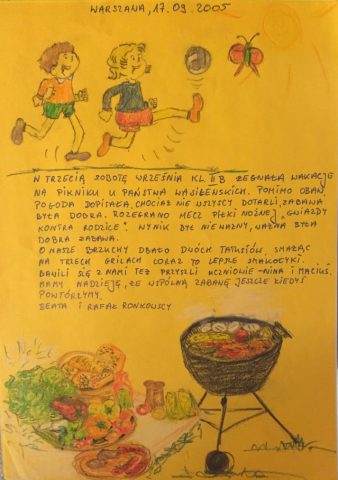 WARSZAWA, 17.09.2005
W TRZECIĄ SOBOTĘ WRZEŚNIA KL. II B ŻEGNAŁA WAKACJE
NA PIKNIKU U PAŃSTWA WASILEŃSKICH. POMIMO OBAW
POGODA DOPISAŁA, CHOCIAŻ NIE WSZYSCY DOTARLI, ZABAWA
BYŁA DOBRA. ROZEGRANO MECZ PIŁKI NOŻNEJ „GWIAZDY
KONTRA RODZICE". WYNIK BYŁ NIEWAŻNY, WAŻNA BYŁA
DOBRA ZABAWA.
O NASZE BRZUCHY DBAŁO DWÓCH TATUSIÓW SMAŻĄC
NA TRZECH GRILACH CORAZ TO LEPSZE SMAKOŁYKI.
BAWILI SIĘ Z NAMI TEŻ PRZYSZLI UCZNIOWIE - NINA I MACIUŚ.
MAMY NADZIEJĘ, ŻE WSPÓLNĄ ZABAWĘ JESZCZE KIEDYŚ
POWTÓRZYMY.
BEATA I RAFAŁ RONKOWSCY